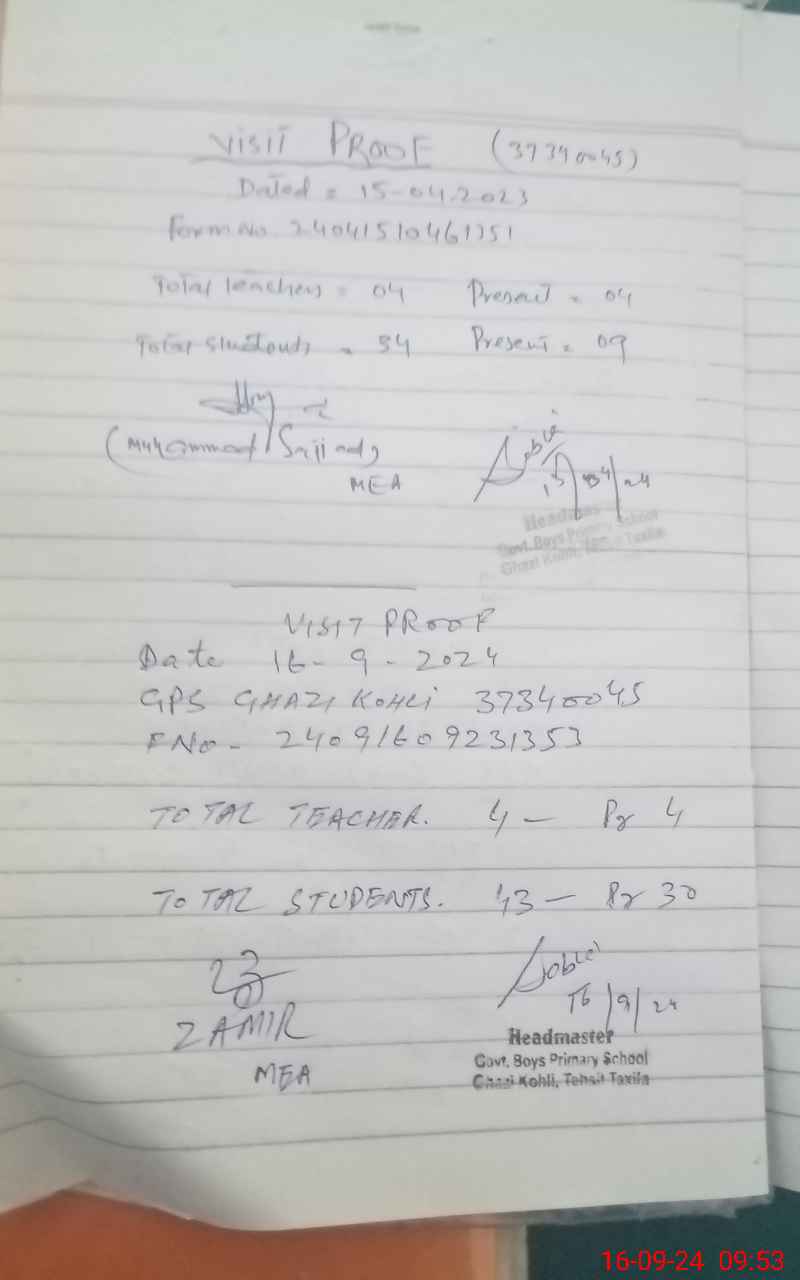 VISIT PROOF (37340045)
Dated = 15-04-2023
Form No. 24041510461351
Total Teachers = 04 Present = 04
Total Students = 34 Present = 09
(Muhammad Sajjad)
MEA
15/04/24
Headmaster
Govt. Boys Primary School
Ghazi Kohli, Tehsil Taxila
VISIT PROOF
Date 16-9-2024
GPS GHAZI KOHLI 37340045
FNo- 24091609231353
TOTAL TEACHER. 4 — Pr 4
TOTAL STUDENTS. 43 — Pr 30
16/9/24
ZAMIR
MEA
Headmaster
Govt. Boys Primary School
Ghazi Kohli, Tehsil Taxila
16-09-24 09:53